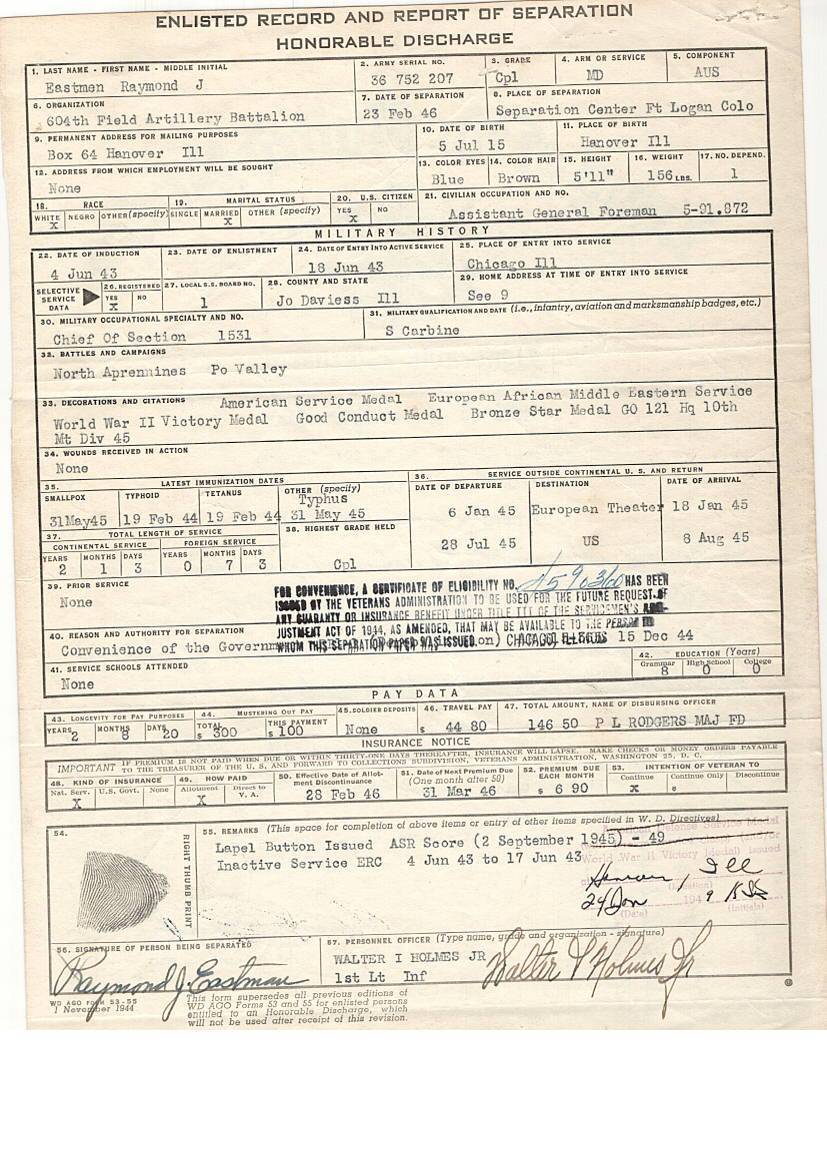 ENLISTED RECORD AND REPORT OF SEPARATION
HONORABLE DISCHARGE
1. LAST NAME - FIRST NAME - MIDDLE INITIAL
Eastmen Raymond J
2. ARMY SERIAL NO.
36 752 207
3. GRADE
Cpl
4. ARM OR SERVICE
MD
5. COMPONENT
AUS
6. ORGANIZATION
604th Field Artillery Battalion
7. DATE OF SEPARATION
23 Feb 46
8. PLACE OF SEPARATION
Separation Center Ft Logan Colo
9. PERMANENT ADDRESS FOR MAILING PURPOSES
Box 64 Hanover Ill
10. DATE OF BIRTH
5 Jul 15
11. PLACE OF BIRTH
Hanover Ill
12. ADDRESS FROM WHICH EMPLOYMENT WILL BE SOUGHT
None
13. COLOR EYES
Blue
14. COLOR HAIR
Brown
15. HEIGHT
5'11"
16. WEIGHT
156 LBS.
17. NO. DEPEND.
1
18. RACE
WHITE X NEGRO OTHER (specify)
19. MARITAL STATUS
SINGLE MARRIED X OTHER (specify)
20. U.S. CITIZEN
YES X NO
21. CIVILIAN OCCUPATION AND NO.
Assistant General Foreman 5-91.872
MILITARY HISTORY
22. DATE OF INDUCTION
4 Jun 43
23. DATE OF ENLISTMENT
24. DATE OF ENTRY INTO ACTIVE SERVICE
18 Jun 43
25. PLACE OF ENTRY INTO SERVICE
Chicago Ill
SELECTIVE SERVICE DATA
26. REGISTERED
YES X NO
27. LOCAL S.S. BOARD NO.
1
28. COUNTY AND STATE
Jo Daviess Ill
29. HOME ADDRESS AT TIME OF ENTRY INTO SERVICE
See 9
30. MILITARY OCCUPATIONAL SPECIALTY AND NO.
Chief Of Section 1531
31. MILITARY QUALIFICATION AND DATE (i.e., infantry, aviation and marksmanship badges, etc.)
S Carbine
32. BATTLES AND CAMPAIGNS
North Aprennines Po Valley
33. DECORATIONS AND CITATIONS
American Service Medal European African Middle Eastern Service
World War II Victory Medal Good Conduct Medal Bronze Star Medal GO 121 Hq 10th
Mt Div 45
34. WOUNDS RECEIVED IN ACTION
None
35. LATEST IMMUNIZATION DATES
SMALLPOX
31May45
TYPHOID
19 Feb 44
TETANUS
19 Feb 44
OTHER (specify)
Typhus
31 May 45
36. SERVICE OUTSIDE CONTINENTAL U. S. AND RETURN
DATE OF DEPARTURE DESTINATION DATE OF ARRIVAL
6 Jan 45 European Theater 18 Jan 45
28 Jul 45 US 8 Aug 45
37. TOTAL LENGTH OF SERVICE
CONTINENTAL SERVICE FOREIGN SERVICE
YEARS MONTHS DAYS YEARS MONTHS DAYS
2 1 3 0 7 3
38. HIGHEST GRADE HELD
Cpl
39. PRIOR SERVICE
None
FOR CONVENIENCE, A CERTIFICATE OF ELIGIBILITY NO. HAS BEEN
ISSUED BY THE VETERANS ADMINISTRATION TO BE USED FOR THE FUTURE REQUEST OF
ANY GUARANTY OR INSURANCE BENEFIT UNDER TITLE III OF THE SERVICEMEN'S READ-
JUSTMENT ACT OF 1944, AS AMENDED, THAT MAY BE AVAILABLE TO THE PERSON TO
WHOM THIS SEPARATION PAPER WAS ISSUED. CHICAGO, ILLINOIS
40. REASON AND AUTHORITY FOR SEPARATION
Convenience of the Govern 15 Dec 44
41. SERVICE SCHOOLS ATTENDED
None
42. EDUCATION (Years)
Grammar High School College
8 0 0
PAY DATA
43. LONGEVITY FOR PAY PURPOSES
YEARS 2 MONTHS DAYS 20
44. MUSTERING OUT PAY
TOTAL $ 300
THIS PAYMENT $ 100
45. SOLDIER DEPOSITS
None
46. TRAVEL PAY
$ 44 80
47. TOTAL AMOUNT, NAME OF DISBURSING OFFICER
146 50 P L RODGERS MAJ FD
INSURANCE NOTICE
IMPORTANT IF PREMIUM IS NOT PAID WHEN DUE OR WITHIN THIRTY-ONE DAYS THEREAFTER, INSURANCE WILL LAPSE. MAKE CHECKS OR MONEY ORDERS PAYABLE
TO THE TREASURER OF THE U. S. AND FORWARD TO COLLECTIONS SUBDIVISION, VETERANS ADMINISTRATION, WASHINGTON 25, D. C.
48. KIND OF INSURANCE
Nat. Serv. X U.S. Govt. None
49. HOW PAID
Allotment X Direct to V. A.
50. Effective Date of Allotment Discontinuance
28 Feb 46
51. Date of Next Premium Due (One month after 50)
31 Mar 46
52. PREMIUM DUE EACH MONTH
$ 6 90
53. INTENTION OF VETERAN TO
Continue X Continue Only $ Discontinue
54.
RIGHT THUMB PRINT
55. REMARKS (This space for completion of above items or entry of other items specified in W. D. Directives)
Lapel Button Issued ASR Score (2 September 1945) - 49
Inactive Service ERC 4 Jun 43 to 17 Jun 43
World War II Victory Medal) issued
Hanover, Ill
(Location)
24 Jan 194
(Date) (Initials)
56. SIGNATURE OF PERSON BEING SEPARATED
Raymond J. Eastman
57. PERSONNEL OFFICER (Type name, grade and organization - signature)
WALTER I HOLMES JR
1st Lt Inf
Walter I Holmes Jr
WD AGO FORM 53-55
1 November 1944
This form supersedes all previous editions of
WD AGO Forms 53 and 55 for enlisted persons
entitled to an Honorable Discharge, which
will not be used after receipt of this revision.